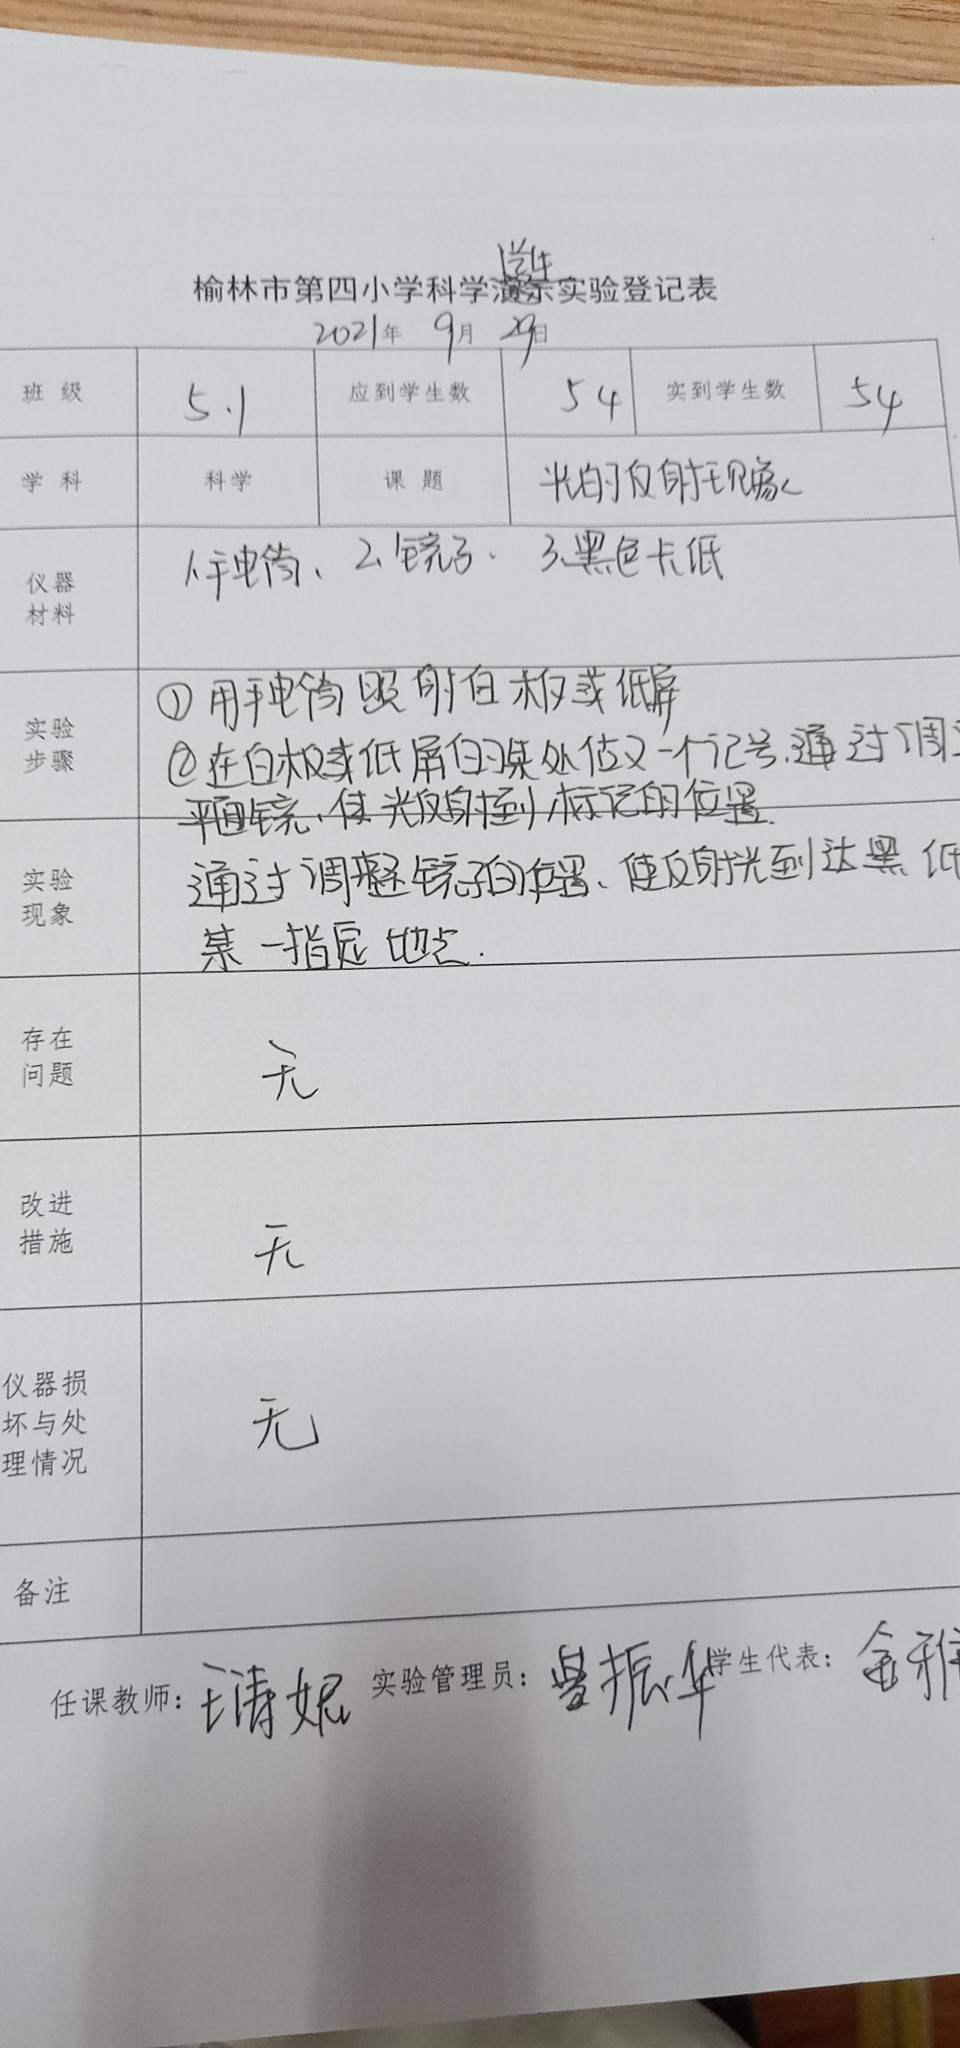 学生
榆林市第四小学科学演示实验登记表
2021年 9月 29日
班 级 5.1 应到学生数 54 实到学生数 54
学 科 科学 课 题 光的反射现象
仪器
材料
1.手电筒、 2.镜子. 3.黑色卡纸
实验
步骤
①用手电筒照射白板或纸屏
②在白板或纸屏的某处做一个记号.通过调
平面镜、使光反射到标记的位置.
实验
现象
通过调整镜子的位置、使反射光到达黑纸
某一指定地点.
存在
问题
无
改进
措施
无
仪器损
坏与处
理情况
无
备注
任课教师: 实验管理员: 振华 学生代表: 金雅